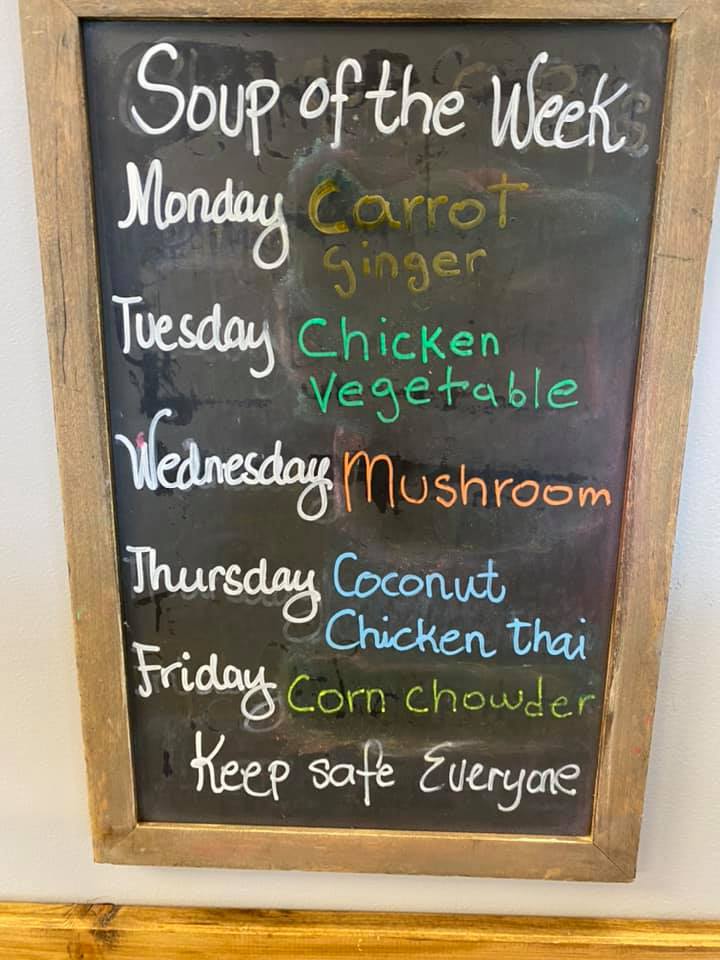 Soup of the Week
Monday Carrot
ginger
Tuesday Chicken
vegetable
Wednesday Mushroom
Thursday Coconut
Chicken thai
Friday Corn chowder
Keep safe Everyone